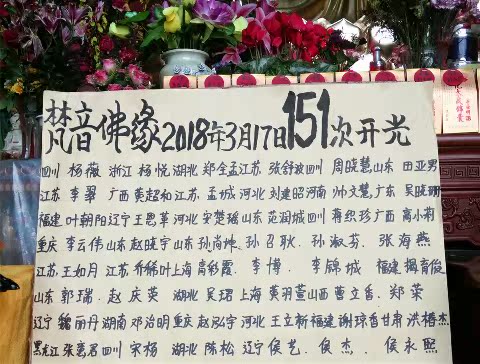 梵音佛缘2018年3月17日151次开光
四川 杨薇 浙江 杨悦 湖北 郑全孟 江苏 张舒波 四川 周晓慧 山东 田亚男
江苏 李翠 广西 黄超和 江苏 孟城 河北 刘建昭 河南 帅文慧 广东 吴晓珊
福建 叶朝阳 辽宁 王恩革 河北 宋楚瑶 山东 范润城 四川 蒋织珍 广西 高小莉
重庆 李云伟 山东 赵晓宇 山东 孙尚坤 孙召耿 孙淑芬 张海燕
江苏 王如月 江苏 乔稀叶 上海 高彩霞 李博 李锦城 福建 揭育俊
山东 郭瑞 赵庆英 湖北 吴珺 上海 黄羽萱 山西 曹立香 郑荣
辽宁 魏丽丹 湖南 邓治明 重庆 赵泓宇 河北 王立新 福建 谢琼香 甘肃 洪椿杰
黑龙江 张嵩君 四川 宋杨 湖北 陈松 辽宁 侯艺 侯杰 侯永熙